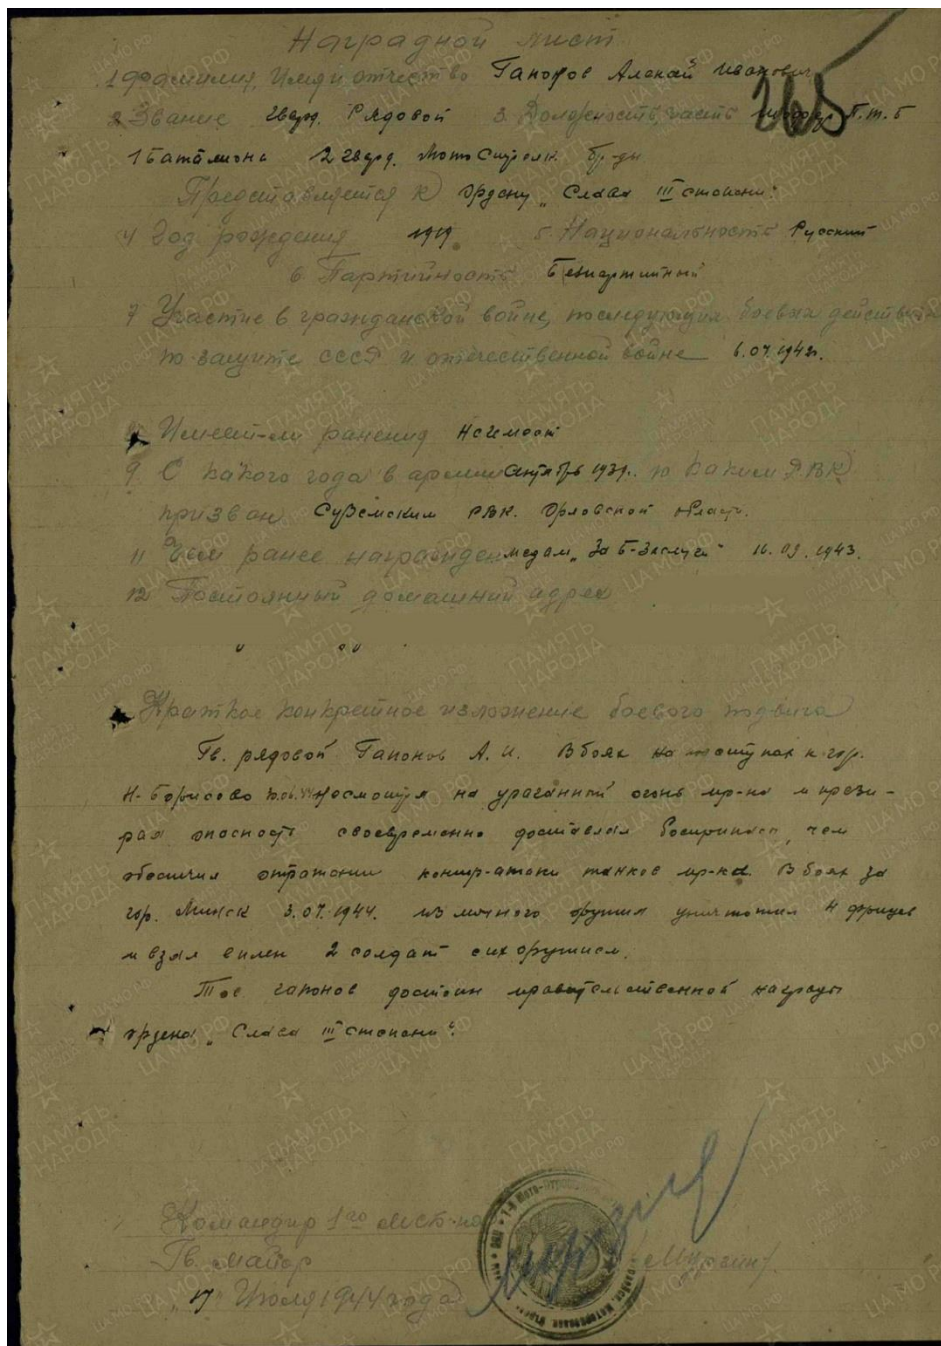 Наградной лист
265
1 Фамилия, Имя и отчество Гапонов Алексей Иванович
2 Звание Гвард. Рядовой 3. Должность, часть шофер б.т.б
1 Батальона 2 гвард. МотоСтрелк. бр-ды
Представляется к ордену „Слава III степени"
4 Год рождения 1919. 5. Национальность Русский
6 Партийность Беспартийный
7 Участие в гражданской войне, последующих боевых действиях
по защите СССР и отечественной войне 6.07.1942г.
Имеет-ли ранения Не имеет
9 С какого года в армии октябрь 1939г. и каким РВК
призван Суземским РВК. Орловской област.
11 Чем ранее награжден медал „За Б-Заслуги" 16.09.1943.
12 Постоянный домашний адрес
Краткое конкретное изложение боевого подвига
Гв. рядовой Гапонов А.И. В боях на подступах к гор.
Н-Борисово несмотря на ураганный огонь пр-ка и прези-
рая опасность своевременно доставлял боеприпасы, чем
обеспечил отражение контр-атаки танков пр-ка. В боях за
гор. Минск 3.07.1944. из личного оружия уничтожил 4 фрицев
и взял в плен 2 солдат с их оружием.
Тов. Гапонов достоин правительственной награды
ордена „Слава III степени".
Командир 1го мсб-на
Гв. майор /Мурзин/
17 Июля 1944 года